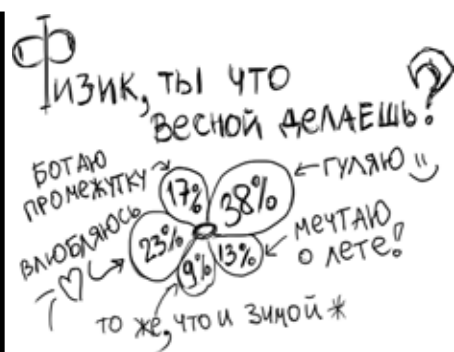 Физик, ты что
весной делаешь?
ботаю
промежутку
17%
38%
гуляю
влюбляюсь
23%
9%
13%
мечтаю
о лете!
то же, что и зимой*